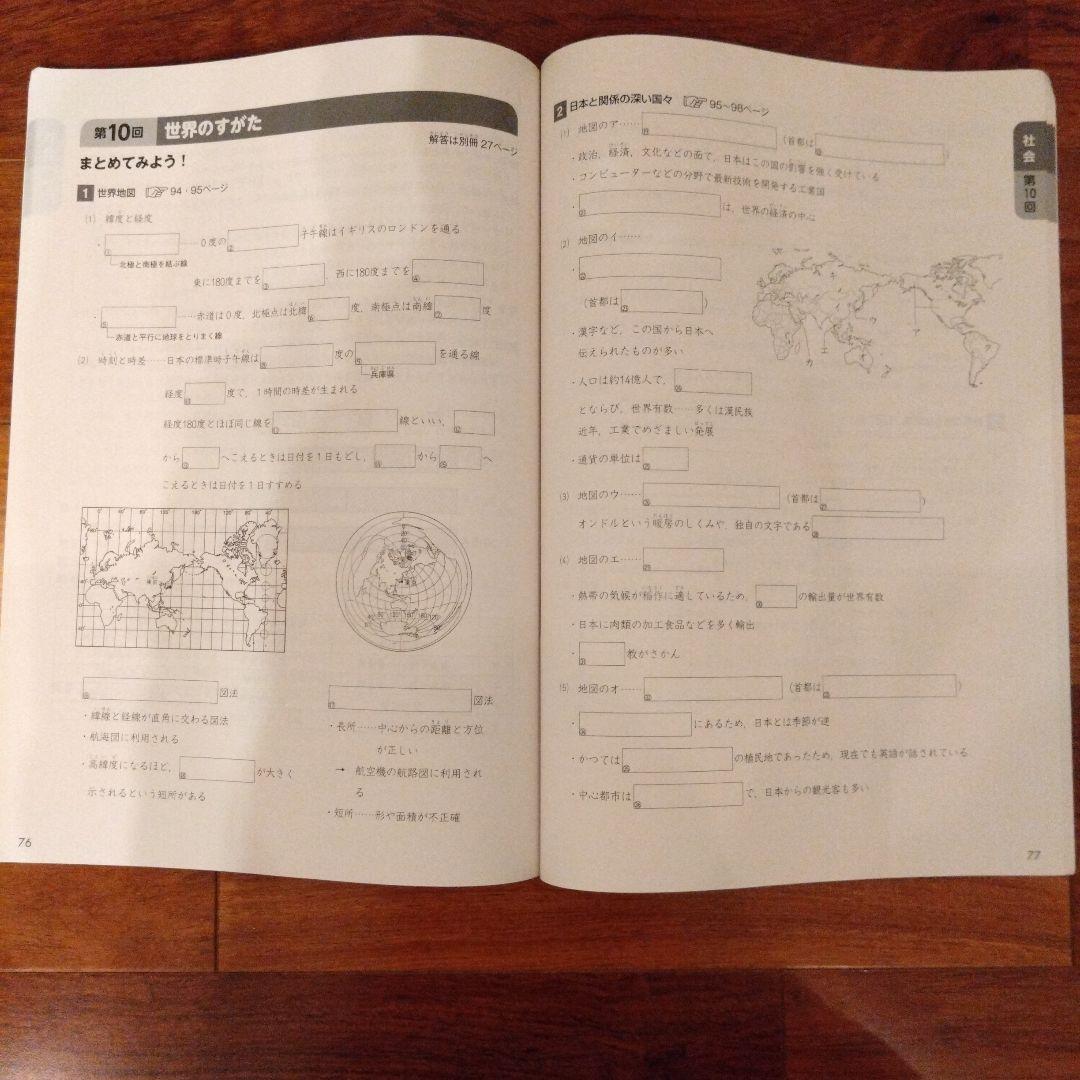 第10回 世界のすがた
解答は別冊 27ページ
まとめてみよう！
1 世界地図 94・95ページ
(1) 緯度と経度
・① ……0度の② 子午線はイギリスのロンドンを通る
北極と南極を結ぶ線
東に180度までを③ 、西に180度までを④
・⑤ ……赤道は0度，北極点は北緯⑥ 度，南極点は南緯⑦ 度
赤道と平行に地球をとりまく線
(2) 時刻と時差……日本の標準時子午線は⑧ 度の⑨ を通る線
兵庫県
経度⑩ 度で，1時間の時差が生まれる
経度180度とほぼ同じ線を⑪ 線といい，⑫
から⑬ へこえるときは日付を1日もどし，⑭ から⑮ へ
こえるときは日付を1日すすめる
⑯ 図法
・緯線と経線が直角に交わる図法
・航海図に利用される
・高緯度になるほど，⑱ が大きく
示されるという短所がある
⑰ 図法
・長所……中心からの距離と方位
が正しい
→ 航空機の航路図に利用され
る
・短所……形や面積が不正確
76
2 日本と関係の深い国々 95～98ページ
(1) 地図のア…… ⑲ （首都は⑳ ）
・政治，経済，文化などの面で，日本はこの国の影響を強く受けている
・コンピューターなどの分野で最新技術を開発する工業国
・㉑ は，世界の経済の中心
(2) 地図のイ……
・㉒
（首都は㉓ ）
・漢字など，この国から日本へ
伝えられたものが多い
・人口は約14億人で，㉔
とならび，世界有数……多くは漢民族
近年，工業でめざましい発展
・通貨の単位は㉕
(3) 地図のウ…… ㉖ （首都は㉗ ）
オンドルという暖房のしくみや，独自の文字である㉘
(4) 地図のエ…… ㉙
・熱帯の気候が稲作に適しているため，㉚ の輸出量が世界有数
・日本に肉類の加工食品などを多く輸出
・㉛ 教がさかん
(5) 地図のオ…… ㉜ （首都は㉝ ）
・㉞ にあるため，日本とは季節が逆
・かつては㉟ の植民地であったため，現在でも英語が話されている
・中心都市は㊱ で，日本からの観光客も多い
社会 第10回
77